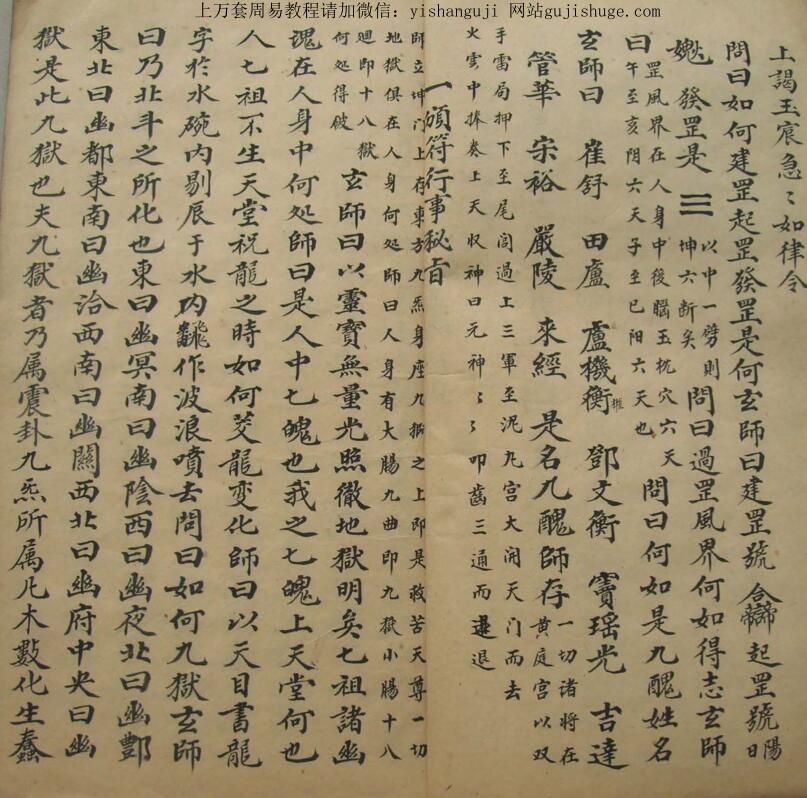 上万套周易教程请加微信：yishanguji 网站gujishuge.com
上謁玉宸急〻如律令
問曰如何建罡起罡發罡是何玄師曰建罡號 起罡號日陽
發罡是☰以中一劈則坤六断矣 問曰過罡風界何如得志玄師
曰罡風界在人身中後腦玉枕穴六天午至亥阴六天子至巳阳六天也 問曰何如是九醜姓名
玄師曰 崔舒 田盧 盧機衡 鄧文衡 竇瑶光 吉達
管華 宋裕 嚴陵 來經 是名九醜師存一切诸将在黄庭宫以双
手雷局押下至尾闾過上三軍至泥九宫大闹天门而去
火雲中捧奏上天収神曰元神〻〻叩齒三通而退
一頒符行事秘旨
師立坤门上存東方九炁身座九狱之上即是救苦天尊一切
地獄俱在人身何处師曰人身有大腸九曲即九獄小腸十八
廻即十八獄何処得破 玄師曰以靈寶無量光照徹地獄明矣七祖諸幽
魂在人身中何処師曰是人中七魄也我之七魄上天堂何也
人七祖不生天堂祝龍之時如何茭龍变化師曰以天目書龍
字於水碗内剔辰于水内翻作波浪噴去問曰如何九獄玄師
曰乃北斗之所化也東曰幽冥南曰幽陰西曰幽夜北曰幽酆
東北曰幽都東南曰幽治西南曰幽關西北曰幽府中央曰幽
獄是此九獄也夫九獄者乃属震卦九炁所属凢木數化生蠢